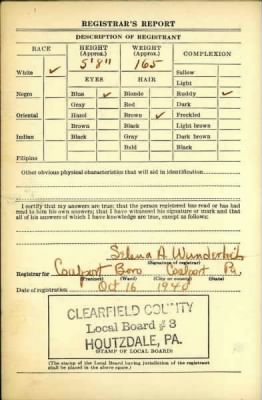 REGISTRAR'S REPORT
DESCRIPTION OF REGISTRANT
RACE HEIGHT (Approx.) WEIGHT (Approx.) COMPLEXION
5'8" 165
White ✓ Sallow
EYES HAIR Light
Negro Blue ✓ Blonde Ruddy ✓
Gray Red Dark
Oriental Hazel Brown ✓ Freckled
Brown Black Light brown
Indian Black Gray Dark brown
Bald Black
Filipino
Other obvious physical characteristics that will aid in identification
I certify that my answers are true; that the person registered has read or has had
read to him his own answers; that I have witnessed his signature or mark and that
all of his answers of which I have knowledge are true, except as follows:
Selena A.
(Signature of registrar)
Registrar for Coalport Boro Coalport Pa.
(Precinct) (Ward) (City or county) (State)
Date of registration Oct 16 1940
CLEARFIELD COUNTY
Local Board #3
HOUTZDALE, PA.
(STAMP OF LOCAL BOARD)
(The stamp of the Local Board having jurisdiction of the registrant
shall be placed in the above space.)